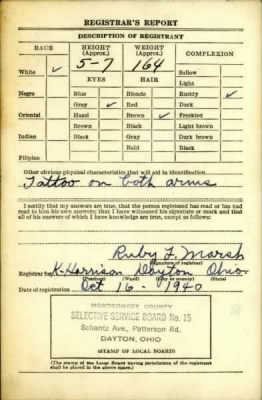 REGISTRAR'S REPORT
DESCRIPTION OF REGISTRANT
RACE HEIGHT (Approx.) WEIGHT (Approx.) COMPLEXION
5-7 164
White ✓ EYES HAIR Sallow
Light
Negro Blue Blonde Ruddy ✓
Gray ✓ Red Dark
Oriental Hazel Brown ✓ Freckled
Brown Black Light brown
Indian Black Gray Dark brown
Bald Black
Filipino
Other obvious physical characteristics that will aid in identification
Tattoo on both arms
I certify that my answers are true; that the person registered has read or has had
read to him his own answers; that I have witnessed his signature or mark and that
all of his answers of which I have knowledge are true, except as follows:
Ruby F. Marsh
(Signature of registrar)
Registrar for K-Harrison Dayton Ohio
(Precinct) (Ward) (City or county) (State)
Date of registration Oct 16 - 1940
MONTGOMERY COUNTY
SELECTIVE SERVICE BOARD No. 15
Schantz Ave., Patterson Rd.
DAYTON, OHIO
(STAMP OF LOCAL BOARD)
(The stamp of the Local Board having jurisdiction of the registrant
shall be placed in the above space.)